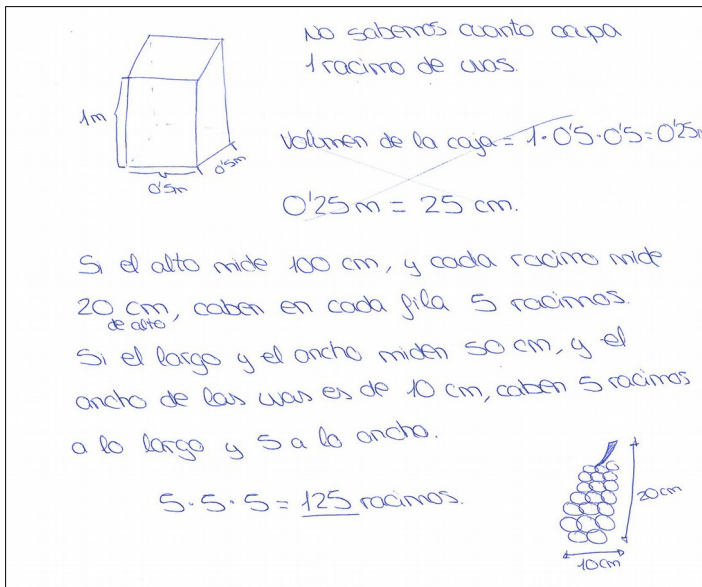 No sabemos cuanto ocupa
1 racimo de uvas.
1m
0'5m
0'5m
Volumen de la caja = 1·0'5·0'5 = 0'25m
0'25 m = 25 cm.
Si el alto mide 100 cm, y cada racimo mide
20 cm, caben en cada fila 5 racimos.
de alto
Si el largo y el ancho miden 50 cm, y el
ancho de las uvas es de 10 cm, caben 5 racimos
a lo largo y 5 a lo ancho.
5·5·5 = 125 racimos.
20cm
10cm